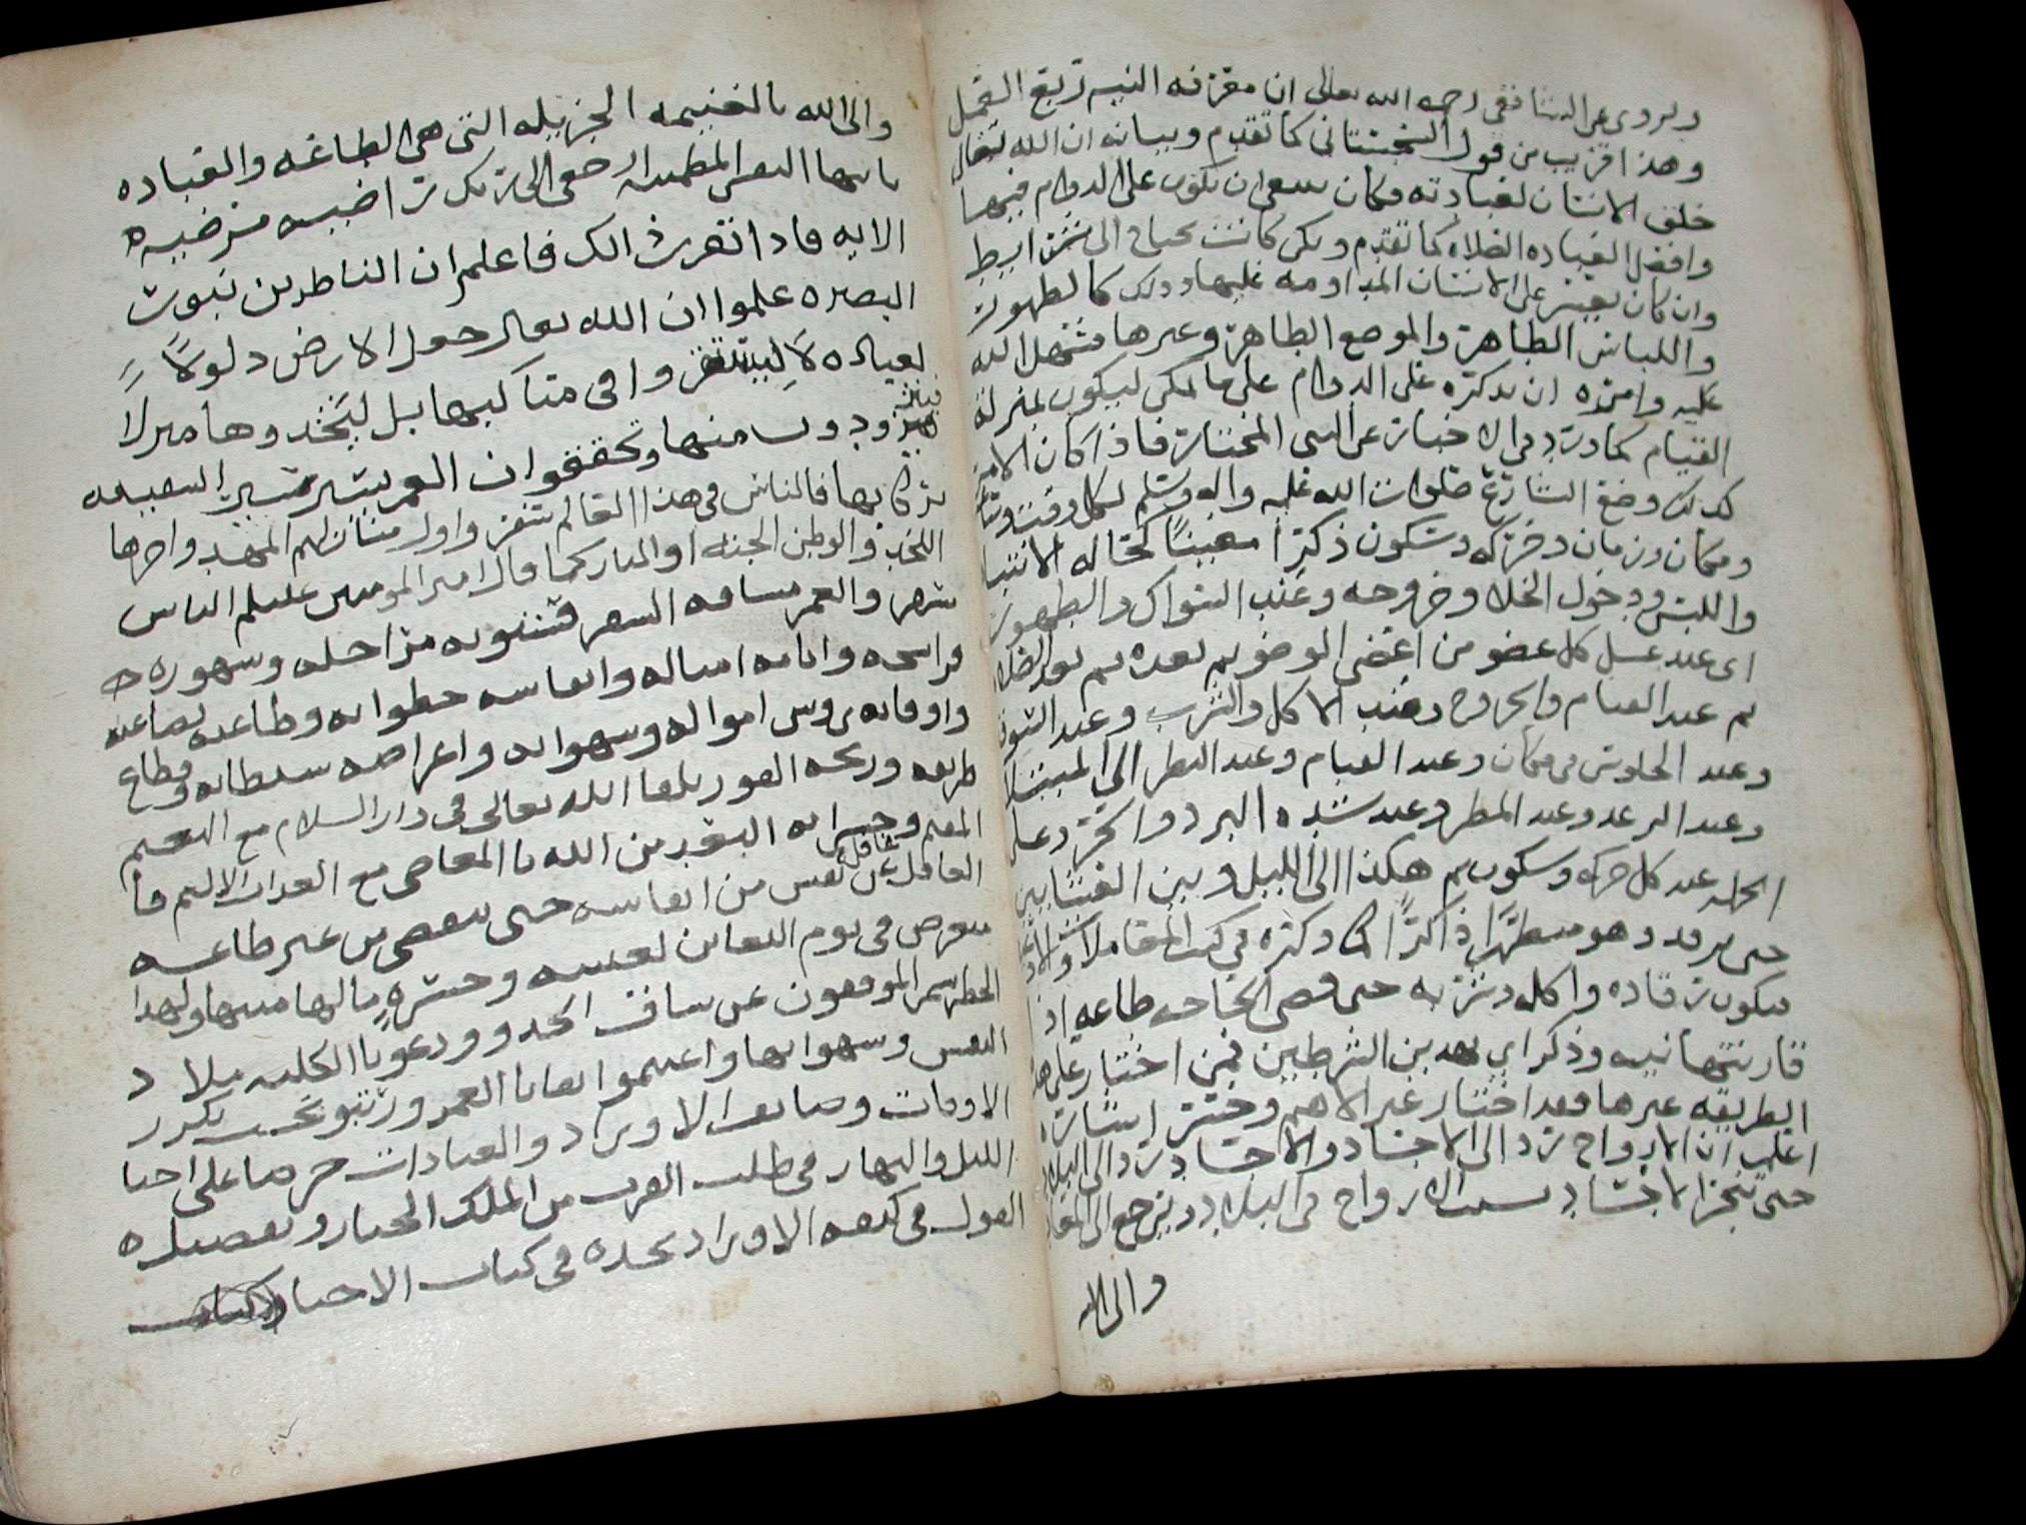 ويروى عن الشافعي رحمه الله تعالى ان معرفه النيه ربع العمل
وهذا قريب من قول السجستاني كما تقدم وبيانه ان الله تعالى
خلق الانسان لعبادته وكان ينبغي ان تكون على الدوام فيها
وافضل العباده الصلاه كما تقدم ولكن كانت تحتاج الى شرايط
وان كان يعسر على الانسان المداومه عليها وذلك كالطهور
واللباس الطاهر والموضع الطاهر وغيرها فسهل الله
عليه وامره ان يذكره على الدوام على ما يمكن ليكون بمنزلة
القيام كما ورد في الاخبار عن النبي المختار فاذا كان الامر
كذلك وضع الشارع صلوات الله عليه واله وسلم لكل وقت
ومكان وزمان وحركه وسكون ذكرا معينا كحاله الانتباه
واللبس ودخول الخلا وخروجه وعند السواك والطهور
اي عند غسل كل عضو من اعضى الوضو ثم بعده ثم بعد الصلاه
ثم عند القيام والخروج وعند الاكل والشرب وعند
وعند الجلوس في مكان وعند القيام وعند النظر الى المبتلا
وعند الرعد وعند المطر وعند شده البرد والحر وعلى
الجمله عند كل حركه وسكون ثم هكذا الى الليل وبين العشايين
حتى يرقد وهو متطهرا ذاكرا كما ذكره في كتب المعاملات
فيكون رقاده واكله وشربه حتى قضى الحاجه طاعه اذا
قارنتها نيه وذكر اي بهذين الشرطين فمن اختار على هذه
الطريقه غيرها فقد اختار غير الاهم وخسر
اعلم ان الارواح ترد الى الاجساد والاجساد ترد الى البلاد
حتى تتجر الاجساد الارواح في البلاد وترجع الى المعاد
والى الله
والى الله بالغنيمه الجزيله التي هي الطاعه والعباده
يا ايها النفس المطمينه ارجعي الى ربك راضيه مرضيه
الايه فاذا تقرر ذلك فاعلم ان الناظرين بنور
البصيره علموا ان الله تعالى جعل الارض ذلولا
لعباده لا ليستقروا في مناكبها بل ليتخذوها منزلا
فيتزودون منها وتحققوا ان العمر يسير سير السفينه
بركابها فالناس في هذا العالم سفر واول منازلهم المهد واخرها
اللحد والوطن الجنه او النار كما قال امير المومنين عليلم الناس
سفر والعمر مسافه السفر فسنونه مراحله وشهوره
فراسخه وايامه امياله وانفاسه خطواته وطاعته بضاعته
واوقاته روس امواله وشهواته واغراضه وقطاع
طريقه وربحه الفوز بلقا الله تعالى في دار السلام مع النعيم
المقيم وخسرانه البعد من الله بالمعاصي مع العذاب الاليم
الغافل عن نفس من انفاسه حتى ينقضي من غير طاعه
متعرض في يوم التغابن لغبينه وحسره مالها منتها ولهذا
الخطر شمر الموفقون عن ساق الجد وودعوا بالكليه ملاد
النفس وشهواتها واغتنموا بقايا العمر ورتبوا بحسب تكرر
الاوقات وضايف الاوراد والعبادات حرصا على احيا
الليل والنهار في طلب القرب من الملك الجبار وتفصيل
القول في كيفيه الاوراد تجده في كتاب الاحيا